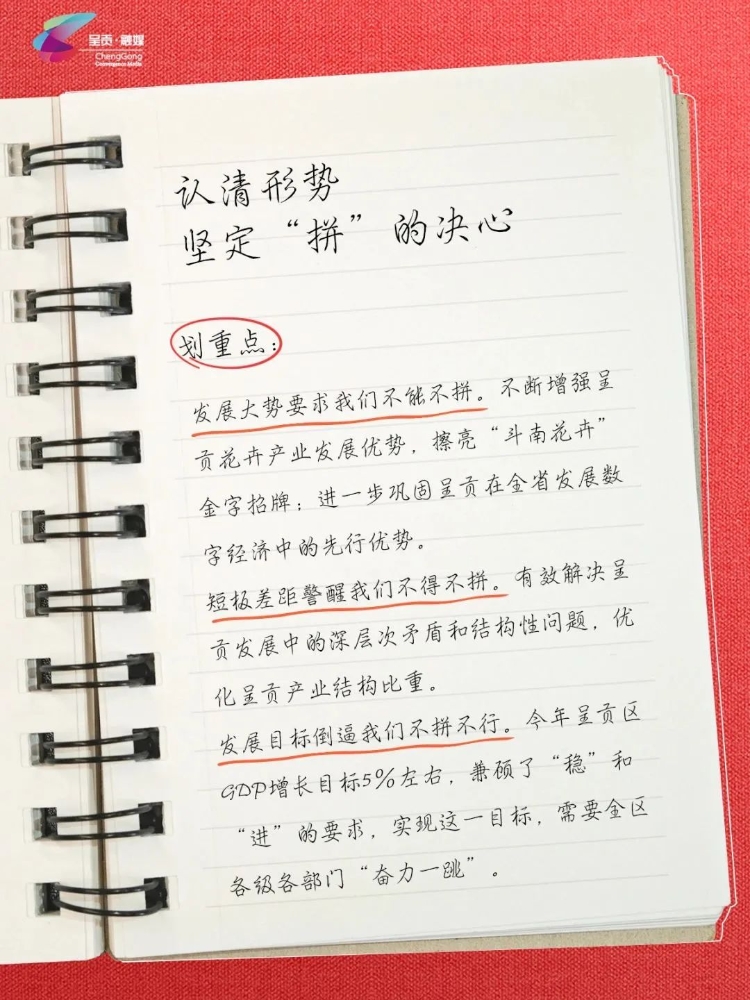 呈贡·融媒
ChengGong
Convergence Media
认清形势
坚定“拼”的决心
划重点：
发展大势要求我们不能不拼。不断增强呈
贡花卉产业发展优势，擦亮“斗南花卉”
金字招牌；进一步巩固呈贡在全省发展数
字经济中的先行优势。
短板差距警醒我们不得不拼。有效解决呈
贡发展中的深层次矛盾和结构性问题，优
化呈贡产业结构比重。
发展目标倒逼我们不拼不行。今年呈贡区
GDP增长目标5%左右，兼顾了“稳”和
“进”的要求，实现这一目标，需要全区
各级各部门“奋力一跳”。